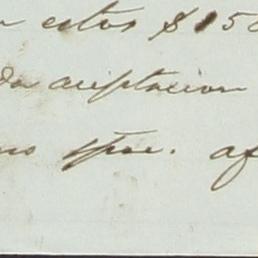 estos $ 150
aceptacion
spre. af